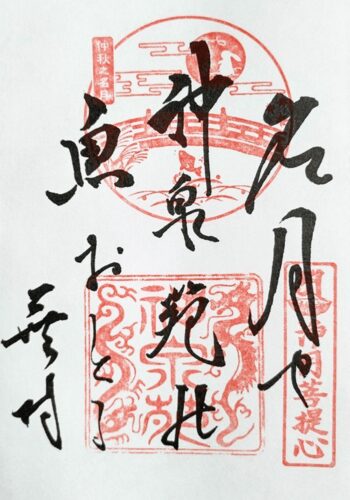 名月や
神泉苑の
魚おどる
蕪村
仲秋之名月
神泉苑
菩提心